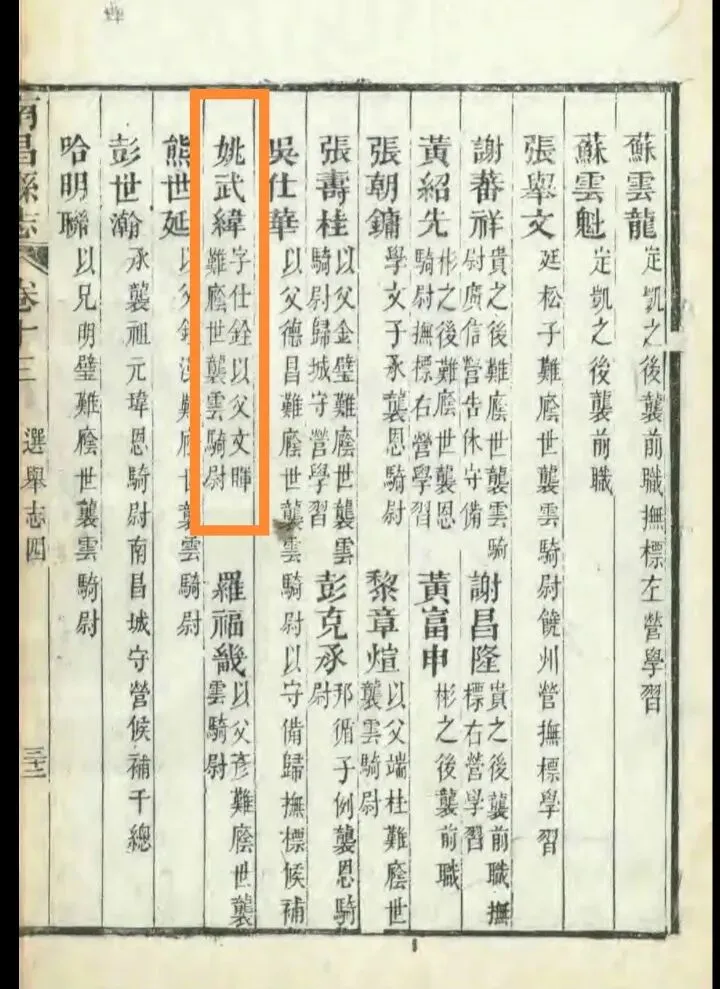 蘇雲龍定凱之後襲前職撫標左營學習
蘇雲魁定凱之後襲前職
張舉文廷松子難廕世襲雲騎尉饒州營撫標學習
謝蕃祥貴之後難廕世襲雲騎
尉廣信營告休守備
謝昌隆貴之後襲前職撫
標右營學習
黃紹先彬之後難廕世襲恩
騎尉撫標右營學習
黃富申彬之後襲前職
張朝鏞學文子承襲恩騎尉
黎章煊以父端杜難廕世
襲雲騎尉
張壽桂以父金璧難廕世襲雲
騎尉歸城守營學習
彭克承邦循子例襲恩騎
尉
吳仕華以父德昌難廕世襲雲騎尉以守備歸撫標候補
姚武緯字仕銓以父文暉
難廕世襲雲騎尉
羅福畿以父彥難廕世襲
雲騎尉
熊世延以父難廕世襲雲騎尉
彭世瀚承襲祖元瑋恩騎尉南昌城守營候補千總
哈明聯以兄明璧難廕世襲雲騎尉
南昌縣志 卷十三 選舉志四 三十二